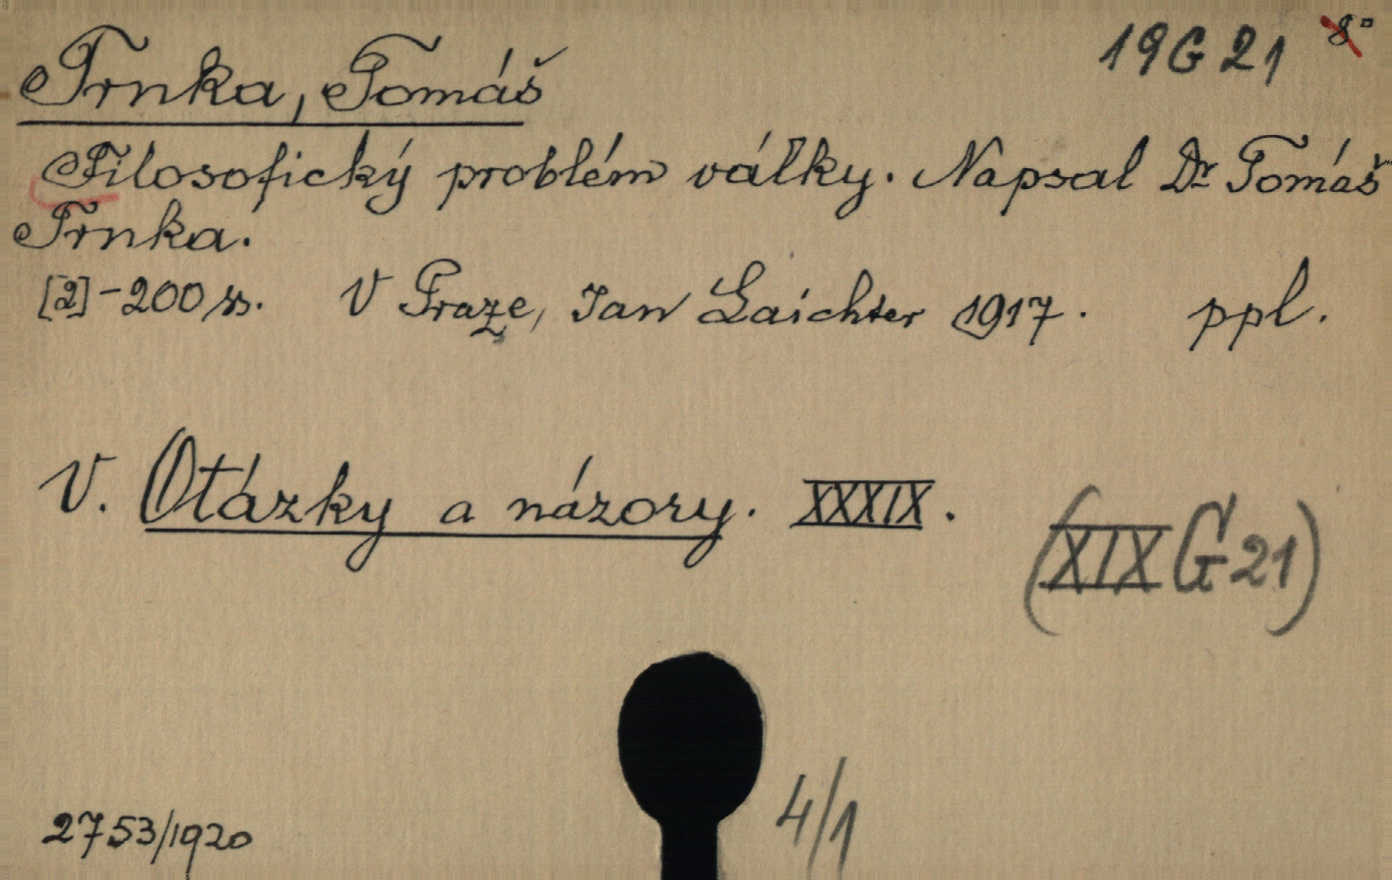 19 G 21 8°
Trnka, Tomáš
Filosofický problém války. Napsal Dr Tomáš
Trnka.
[2]-200 ss. V Praze, Jan Laichter 1917. ppl.
V. Otázky a názory. XXXIX.
(XIX G 21)
4/1
2753/1920